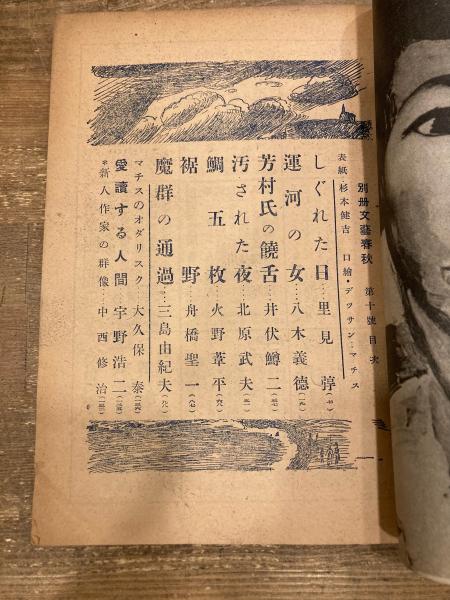 別册文藝春秋 第十號 目次
表紙・杉本健吉 口繪・デッサン‥マチス
しぐれた日…里見弴(七)
運河の女…八木義德
芳村氏の饒舌…井伏鱒二
汚された夜…北原武夫
鯛五枚…火野葦平
裾野…舟橋聖一
魔群の通過…三島由紀夫
マチスのオダリスク…大久保泰
愛讀する人間…宇野浩二
*新人作家の群像…中西修治